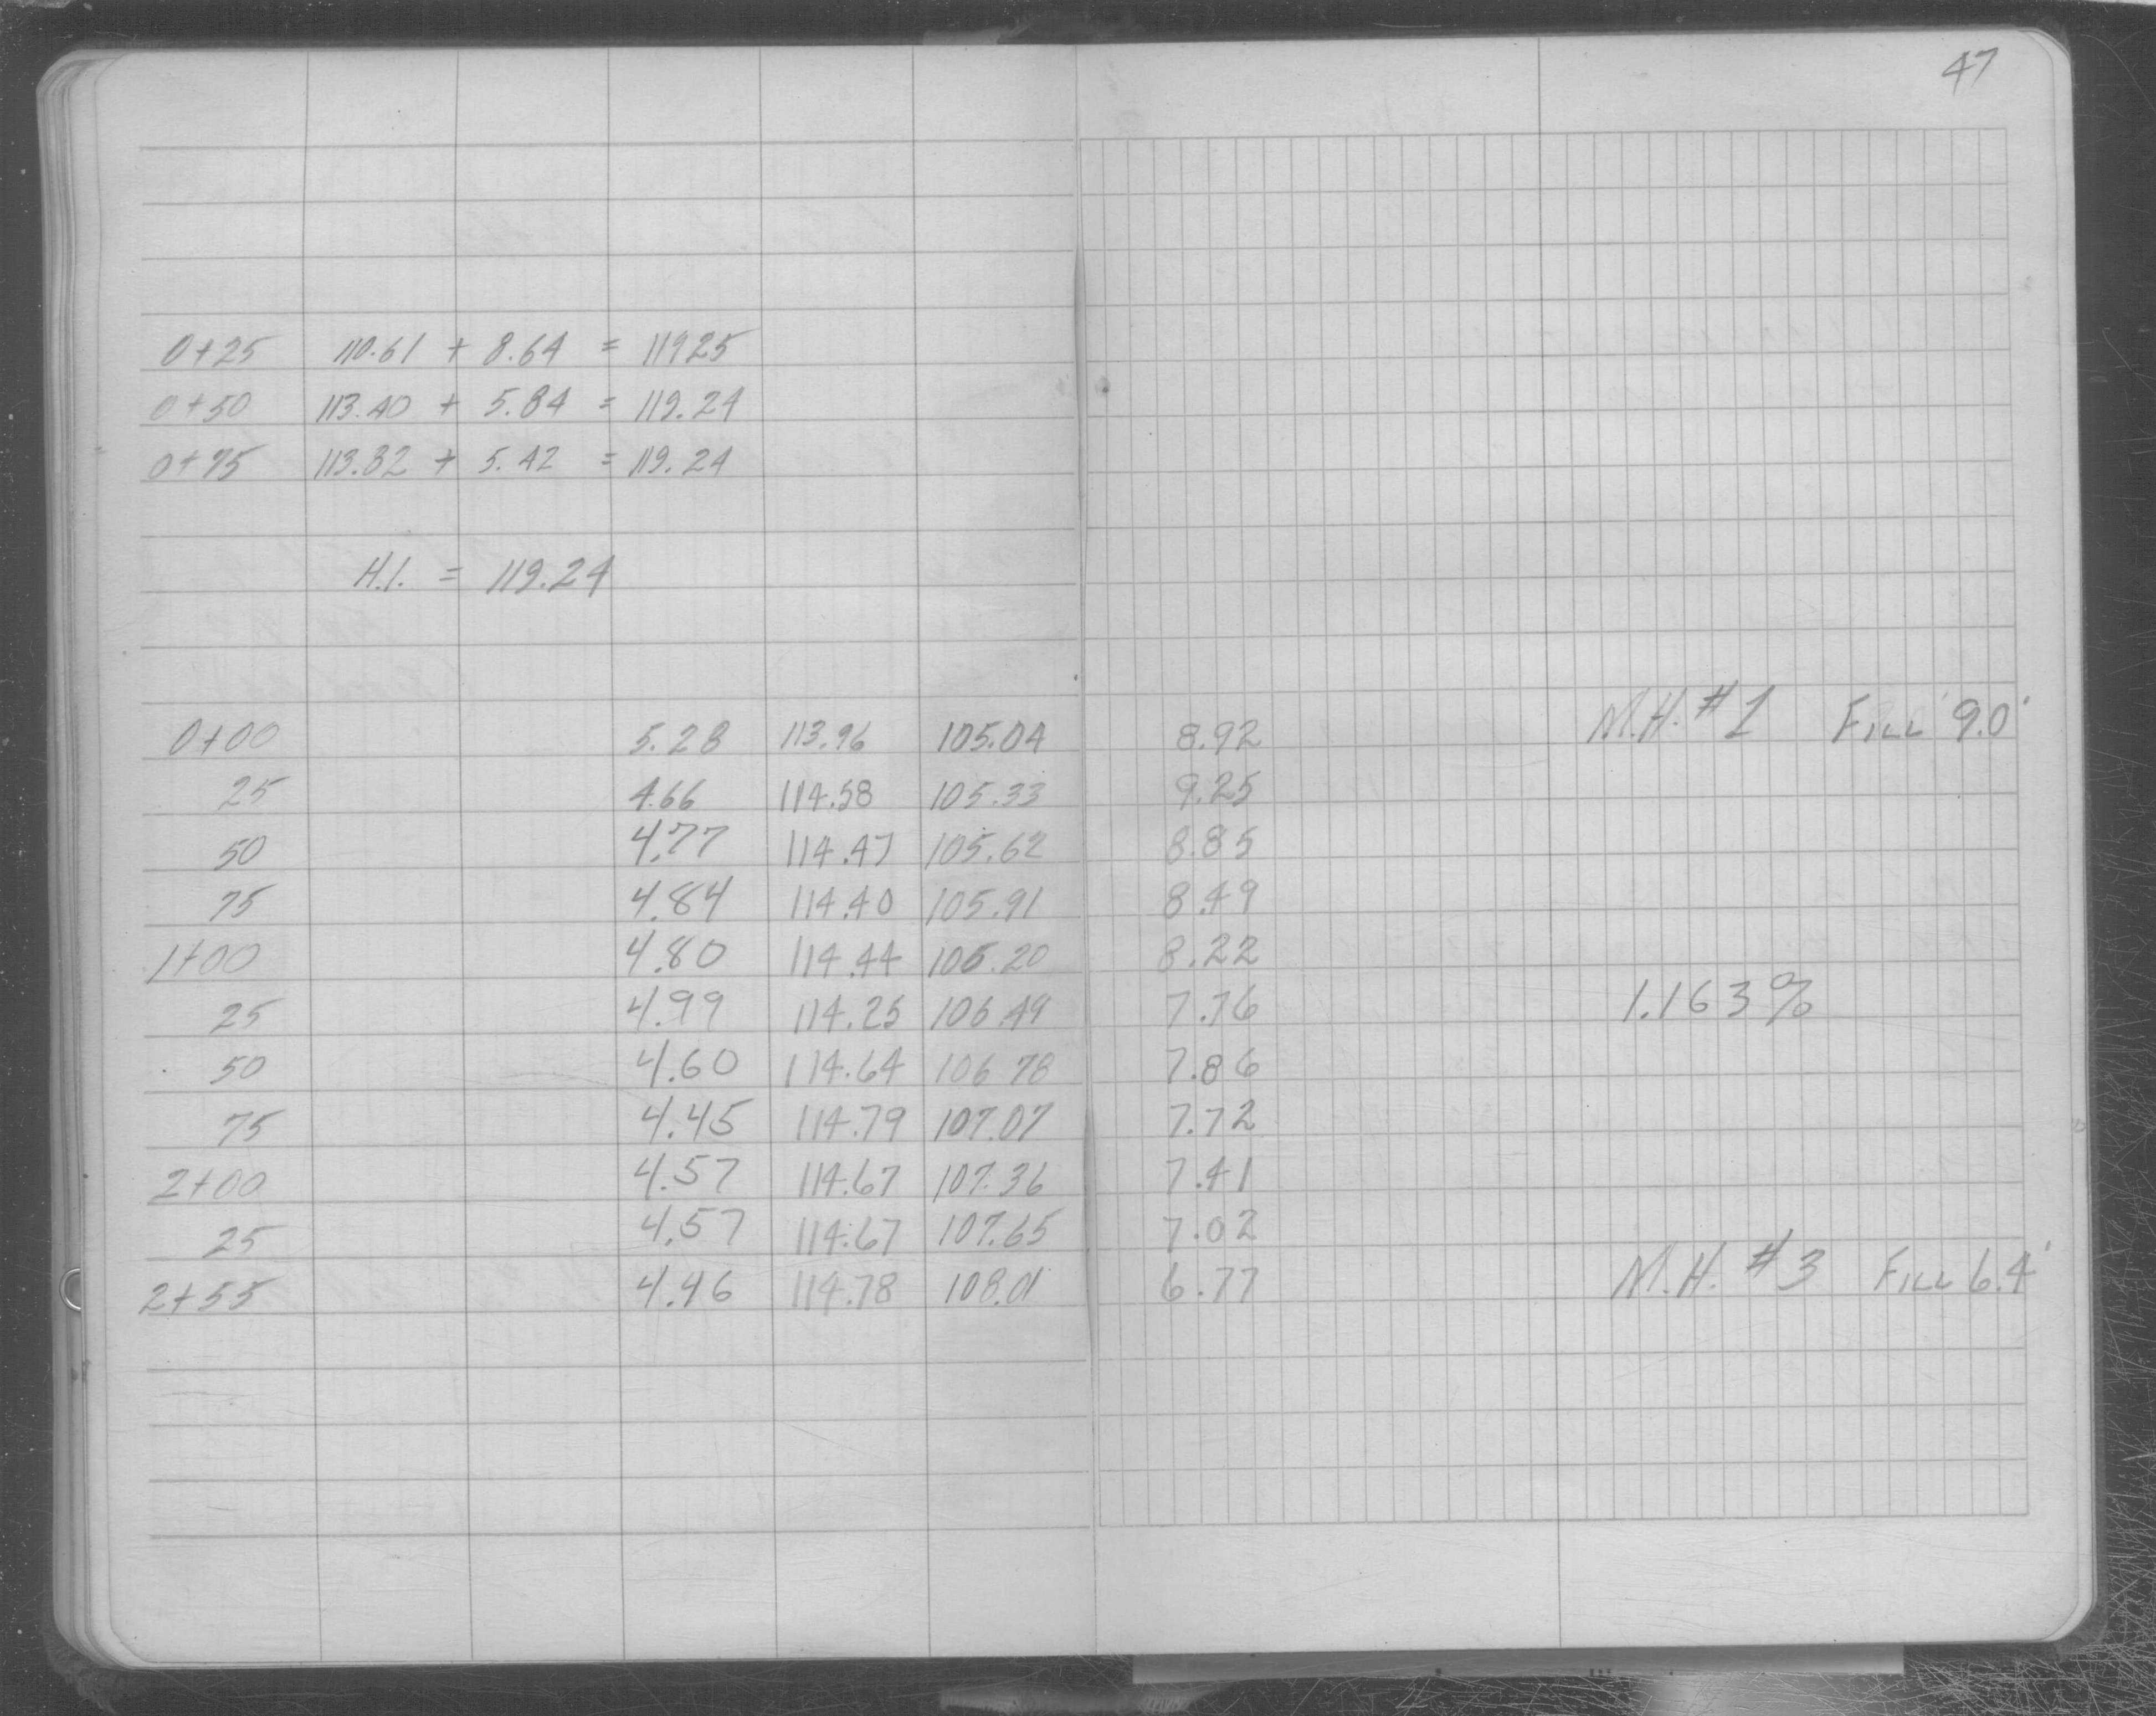 47
0+25 110.61 + 8.64 = 11925
0+50 113.40 + 5.84 = 119.24
0+75 113.82 + 5.42 = 119.24
H.I. = 119.24
0+00 5.28 113.96 105.04 8.92 M.H. #1 FILL 9.0'
25 4.66 114.58 105.33 9.25
50 4.77 114.47 105.62 8.85
75 4.84 114.40 105.91 8.49
1+00 4.80 114.44 106.20 8.22
25 4.99 114.25 106.49 7.76 1.163%
50 4.60 114.64 106 78 7.86
75 4.45 114.79 107.07 7.72
2+00 4.57 114.67 107.36 7.41
25 4.57 114.67 107.65 7.02
2+55 4.46 114.78 108.01 6.77 M.H. #3 FILL 6.4'